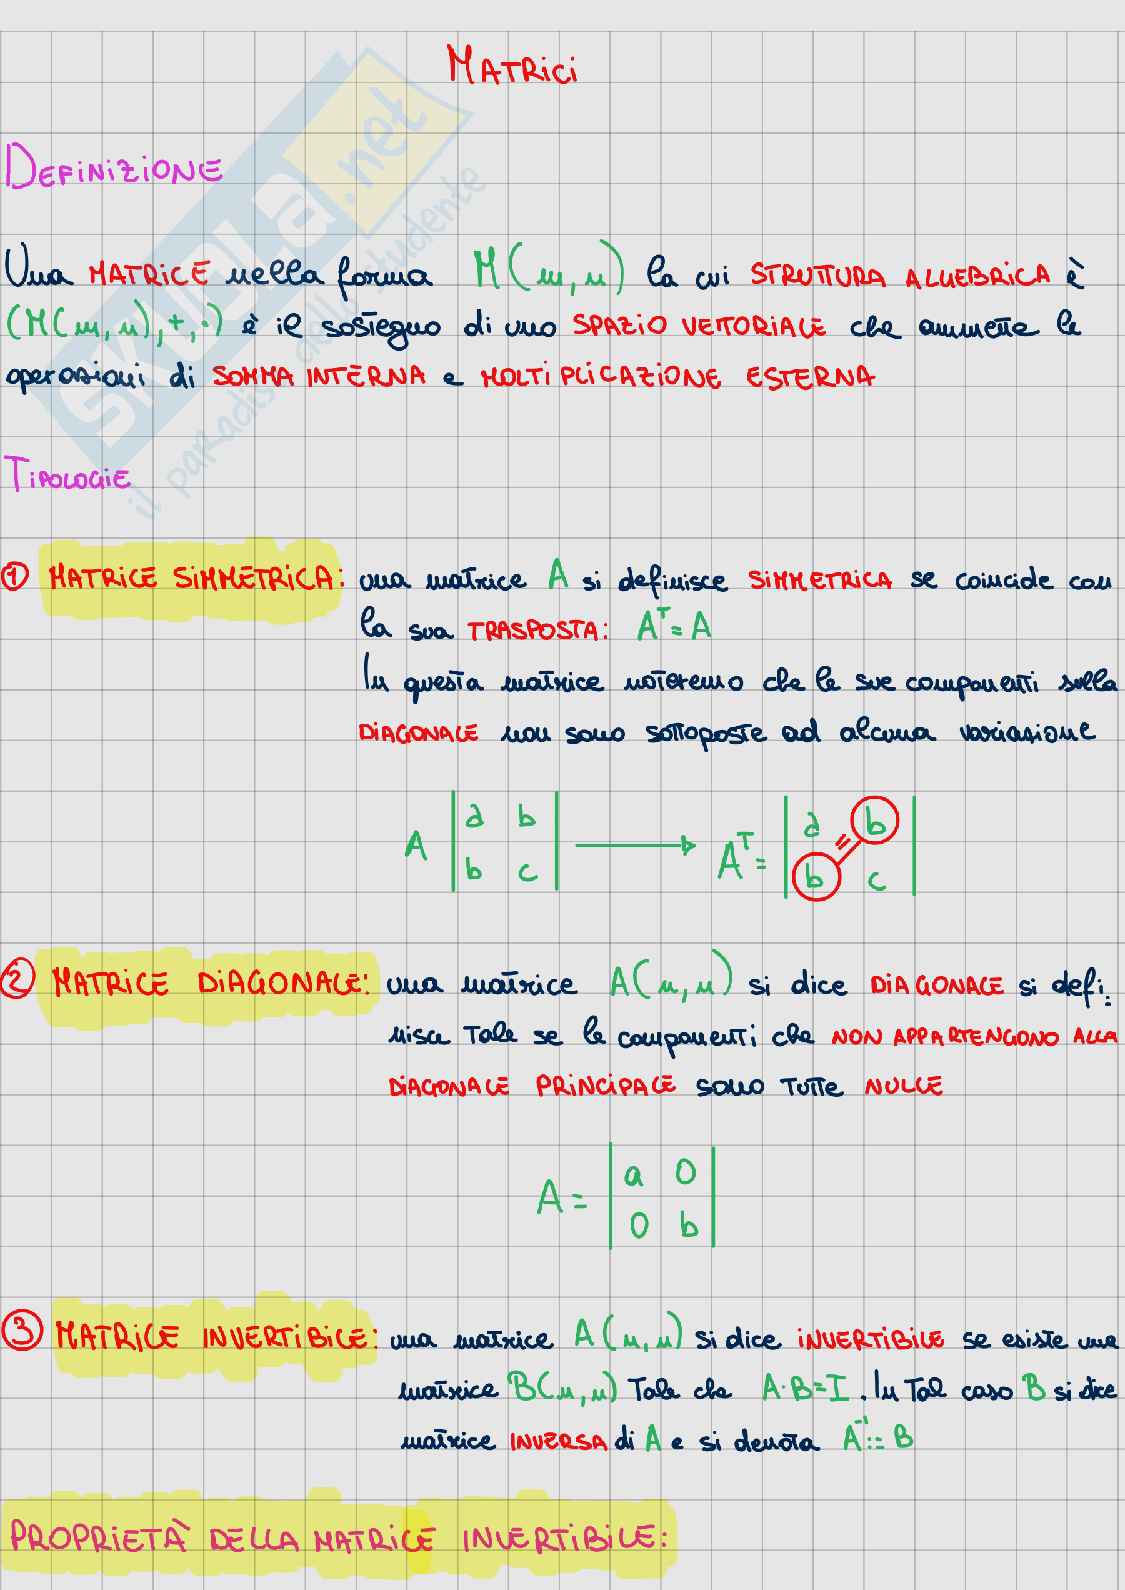 MATRICI
DEFINIZIONE
Una MATRICE nella forma M(m,n) la cui STRUTTURA ALGEBRICA è
(M(m,n),+,·) è il sostegno di uno SPAZIO VETTORIALE che ammette le
operazioni di SOMMA INTERNA e MOLTIPLICAZIONE ESTERNA
TIPOLOGIE
① MATRICE SIMMETRICA: una matrice A si definisce SIMMETRICA se coincide con
la sua TRASPOSTA: Aᵀ=A
In questa matrice noteremo che le sue componenti sulla
DIAGONALE non sono sottoposte ad alcuna variazione
A |a b| → Aᵀ= |a b|
|b c| = |b c|
② MATRICE DIAGONALE: una matrice A(n,n) si dice DIAGONALE si defi:
nisce Tale se le componenti che NON APPARTENGONO ALLA
DIAGONALE PRINCIPALE sono TUTTE NULLE
A= |a 0|
|0 b|
③ MATRICE INVERTIBILE: una matrice A(n,n) si dice INVERTIBILE se esiste una
matrice B(n,n) Tale che A·B=I. In Tal caso B si dice
matrice INVERSA di A e si denota A⁻¹:= B
PROPRIETÀ DELLA MATRICE INVERTIBILE:
SKUOLA.net
il paradiso dello studente